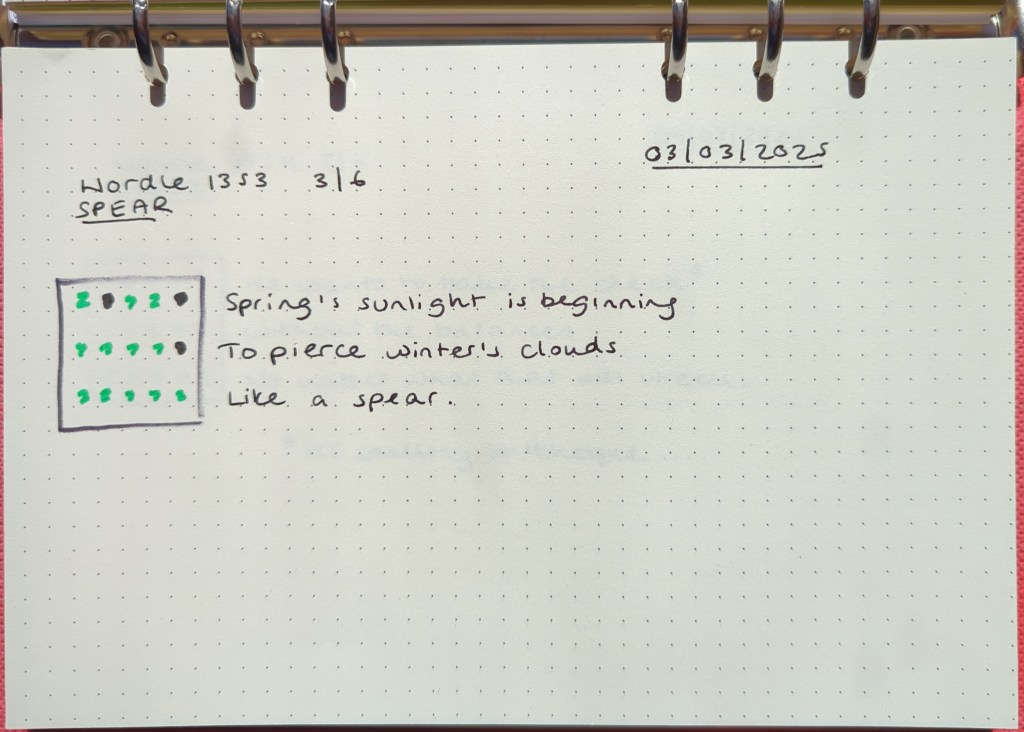 03/03/2025
Wordle 1353 3/6
SPEAR
Spring's sunlight is beginning
To pierce winter's clouds
Like a spear.